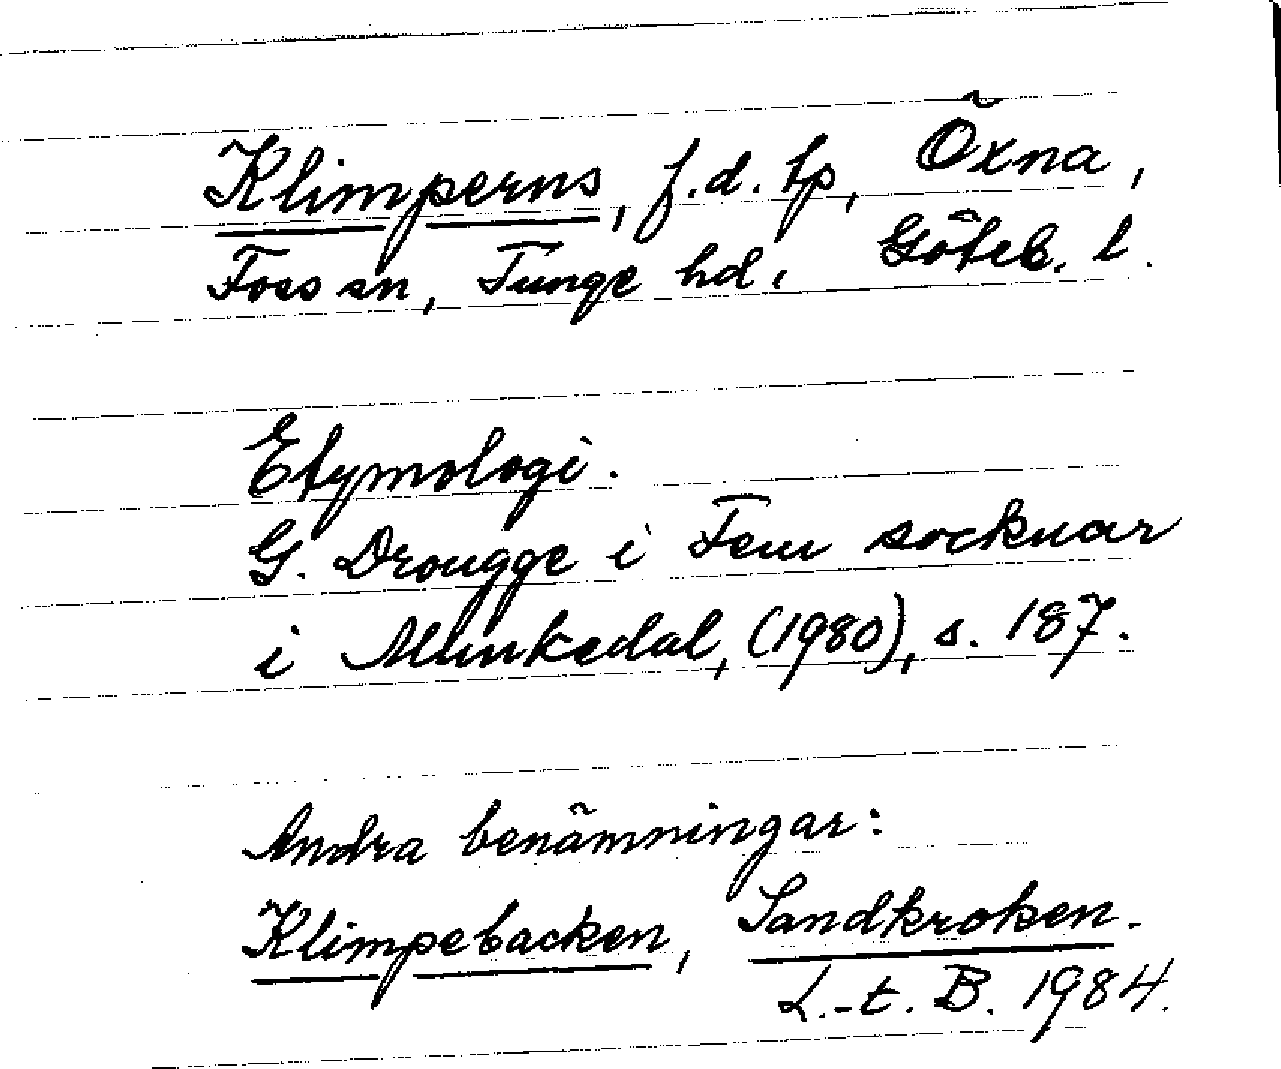 Klimperns, f.d. tp, Öxna,
Foss sn, Tunge hd, Göteb. l.
Etymologi.
G. Drougge i Fem socknar
i Munkedal, (1980), s. 187.
Andra benämningar:
Klimpebacken, Sandkroken.
L.-t. B. 1984.